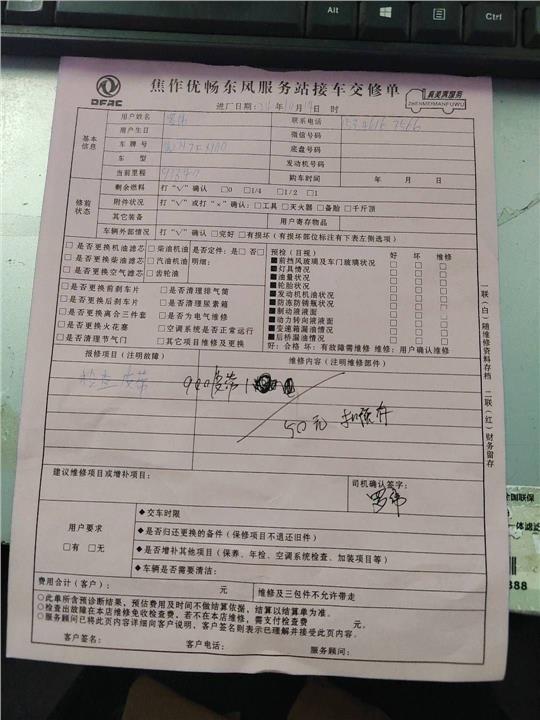 焦作优畅东风服务站接车交修单
DFAC
真美满服务
ZHENMEIMANFUWU
进厂日期: 年 月 日 时
基本信息
用户姓名 罗伟 联系电话
用户生日 微信号码
车牌号 底盘号码
车型 发动机号码
当前里程 购车时间 年 月 日
修前状态
剩余燃料 打“√”确认 □0 □1/4 □1/2 □1
附件状况 打“√”或打“×”确认:□工具 □灭火器 □备胎 □千斤顶
其它装备 用户寄存物品
车辆外部情况 打“√”确认 □完好 □有损坏(有损坏部位标注有下表左侧选项)
□是否更换机油滤芯 □柴油机油 是否定件:□是 □否
□是否更换柴油滤芯 □汽油机油 明细:
□是否更换空气滤芯 □齿轮油
□是否更换前刹车片 □是否清理排气筒
□是否更换后刹车片 □是否清理尿素箱
□是否更换离合三件套 □是否为电气维修
□是否更换火花塞 □空调系统是否正常运行
□是否清理节气门 □其它项目维修及更换
预检(目视) 好 坏 维修
■前挡风玻璃及车门玻璃状况 □ □ □
■灯具情况 □ □ □
■油量状况 □ □ □
■轮胎状况 □ □ □
■发动机机油状况 □ □ □
■防冻防锈瓶状况 □ □ □
■制动液液面 □ □ □
■动力转向液液面 □ □ □
■变速箱漏油情况 □ □ □
■后桥漏油情况 □ □ □
好:合格 坏:有故障需维修 维修:用户确认维修
报修项目(注明故障) 维修内容(注明维修部件)
检查皮带
940皮带1
50元 扣预存
建议维修项目或增补项目:
司机确认签字:
罗伟
用户要求
□有 □无
◆交车时限
◆是否归还更换的备件(保修项目不退还旧件)
◆是否增补其他项目(保养、年检、空调系统检查、加装项目等)
◆车辆是否需要清洁:
费用合计(客户): 元 维修及三包件不允许带走
○此单所含预诊断结果,预估费用及时间不做结算依据,结算以结算单为准。
○检查出故障在本店维修免收检查费,若不在本店维修,需支付检查费 元。
○服务顾问已将此页内容详细向客户说明,客户签名则表示已理解并接受此页内容。
客户签名: 客户电话: 服务顾问:
一联(白)随维修资料存档 二联(红)财务留存
Alt
Ctrl
全国联保
888